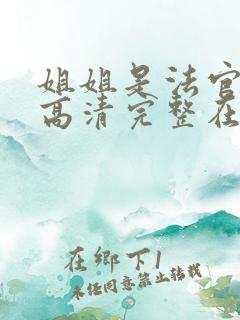 姐姐是法官
高清完整在
在鄉下1
未经同意禁止转载